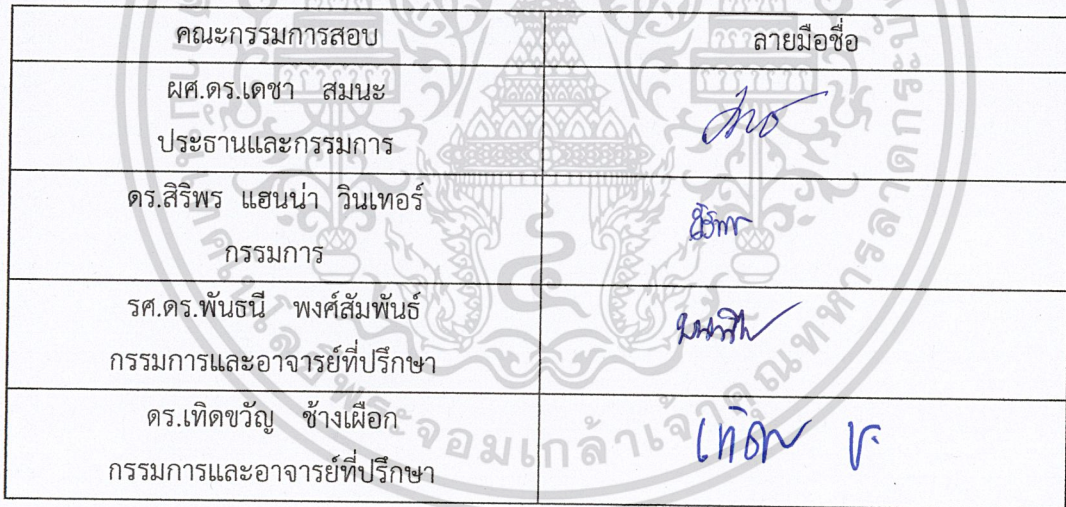 คณะกรรมการสอบ ลายมือชื่อ
ผศ.ดร.เดชา สมนะ
ประธานและกรรมการ
ดร.สิริพร แฮนน่า วินเทอร์
กรรมการ
รศ.ดร.พันธนี พงศ์สัมพันธ์
กรรมการและอาจารย์ที่ปรึกษา
ดร.เทิดขวัญ ช้างเผือก
กรรมการและอาจารย์ที่ปรึกษา